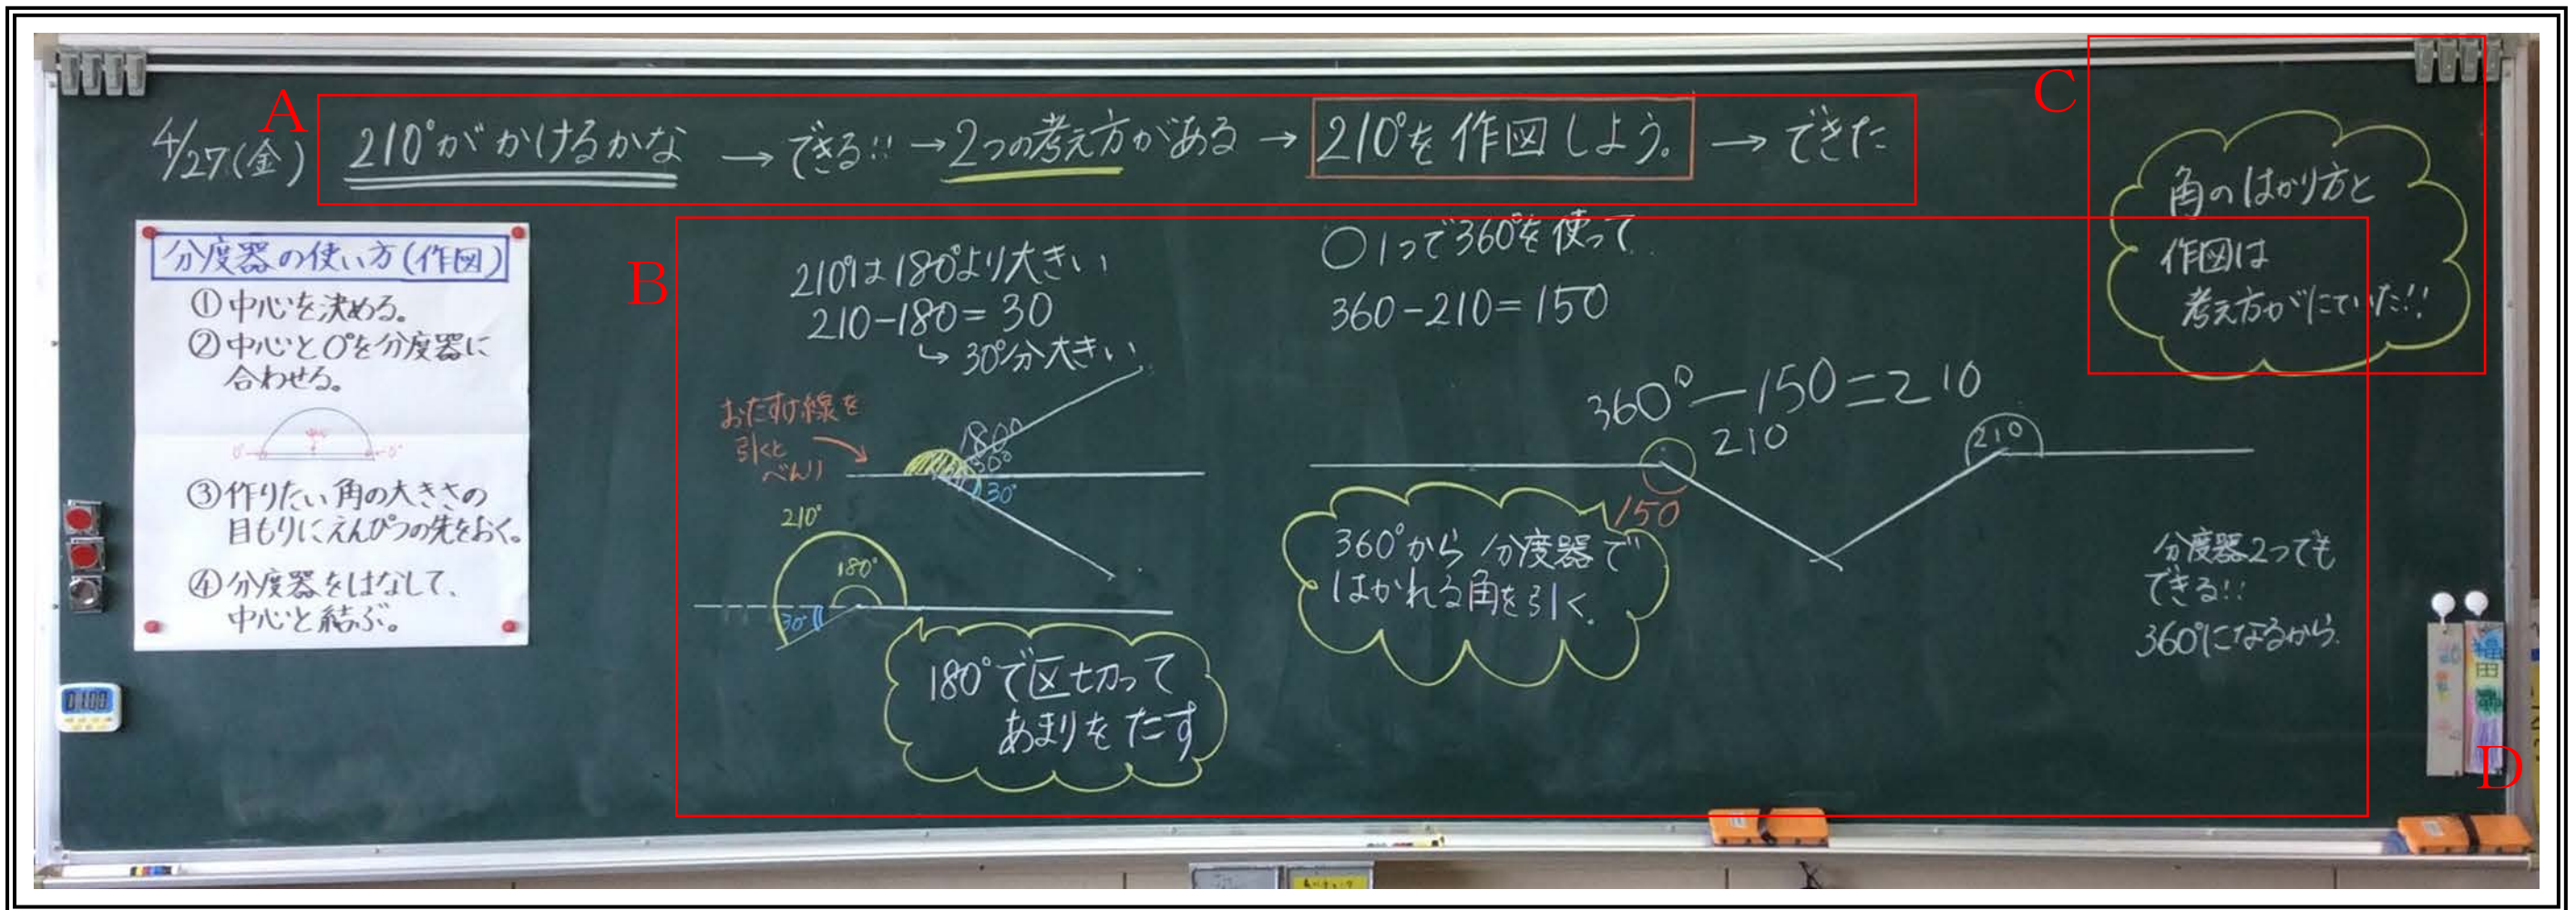 A
4/27(金) 210°がかけるかな → できる!! → 2つの考え方がある → 210°を作図しよう。 → できた
分度器の使い方(作図)
①中心を決める。
②中心と0°を分度器に
合わせる。
0° 0°
③作りたい角の大きさの
目もりにえんぴつの先をおく。
④分度器をはなして、
中心と結ぶ。
01:00
B
210°は180°より大きい
210-180=30
↳ 30°分大きい
おたすけ線を
引くと
べんり
180°
30°
30°
210°
180°
30°
180°で区切って
あまりをたす
○1つで360°を使って
360-210=150
360°-150=210
210
210
150
360°から分度器で
はかれる角を引く。
分度器2つでも
できる!!
360°になるから。
C
角のはかり方と
作図は
考え方がにていた!!
福田
D